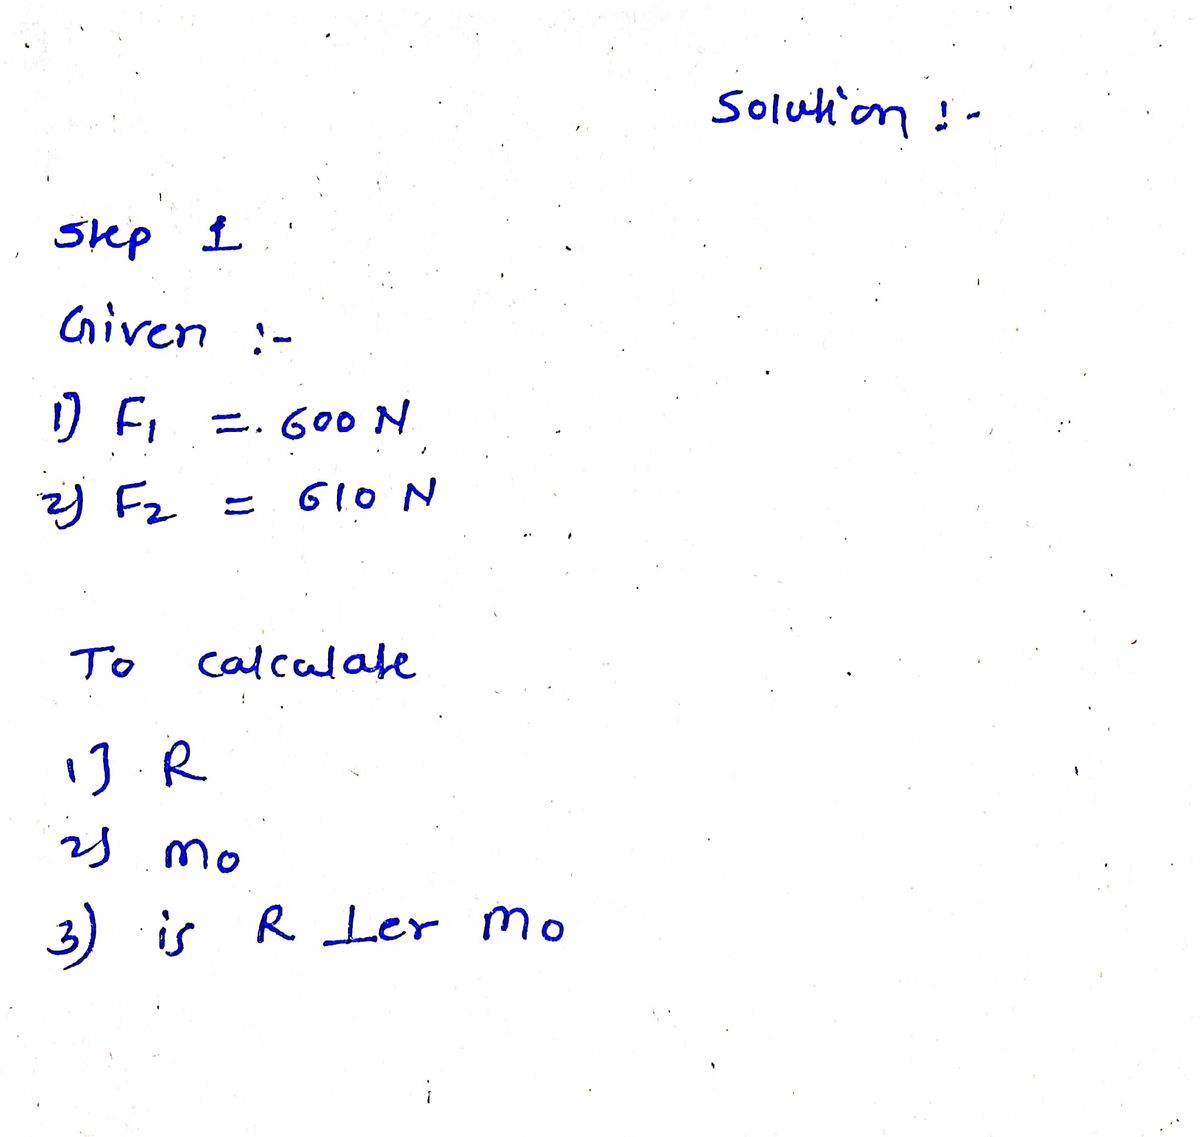 Solution :-
Step 1
Given :-
1) F₁ = 600 N
2) F₂ = 610 N
To calculate
1] R
2] Mo
3) is R ⊥er Mo